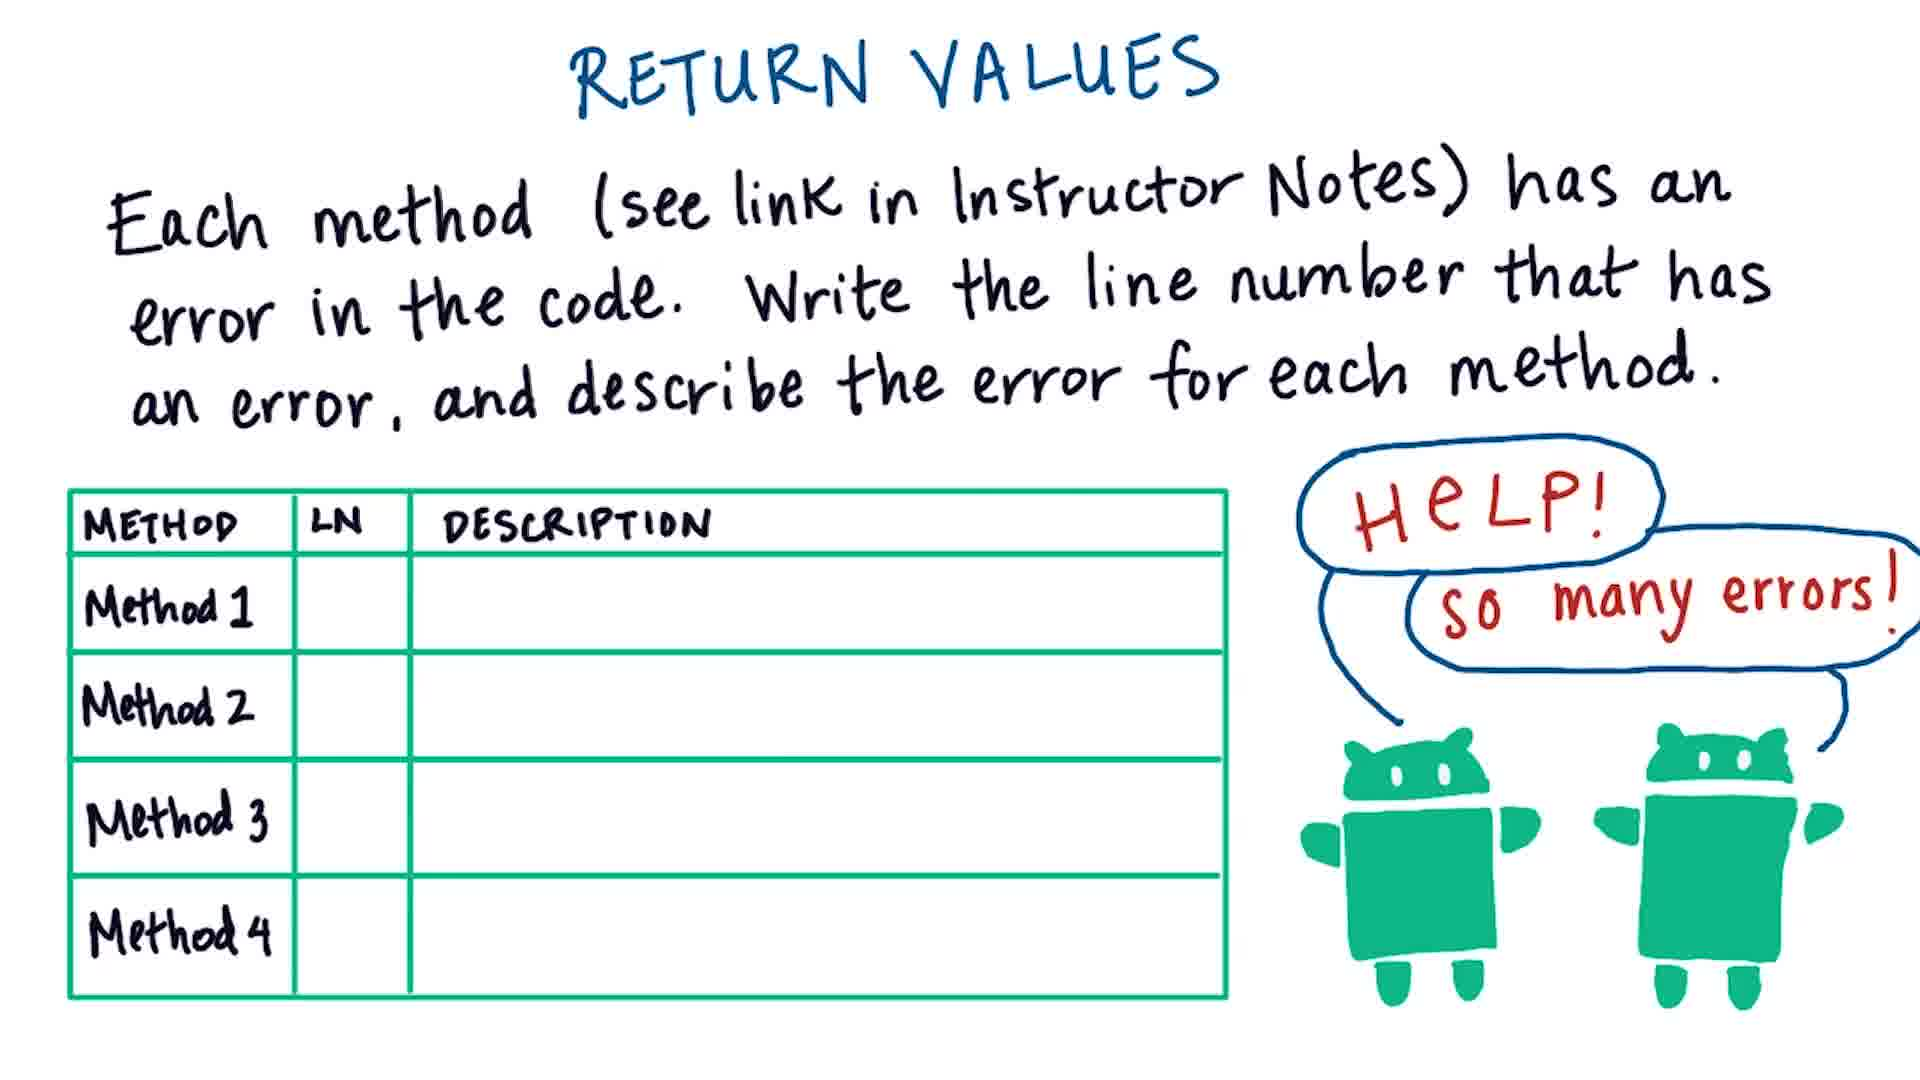 RETURN VALUES
Each method (see link in Instructor Notes) has an
error in the code. Write the line number that has
an error, and describe the error for each method.
METHOD LN DESCRIPTION
Method 1
Method 2
Method 3
Method 4
HeLP!
so many errors!